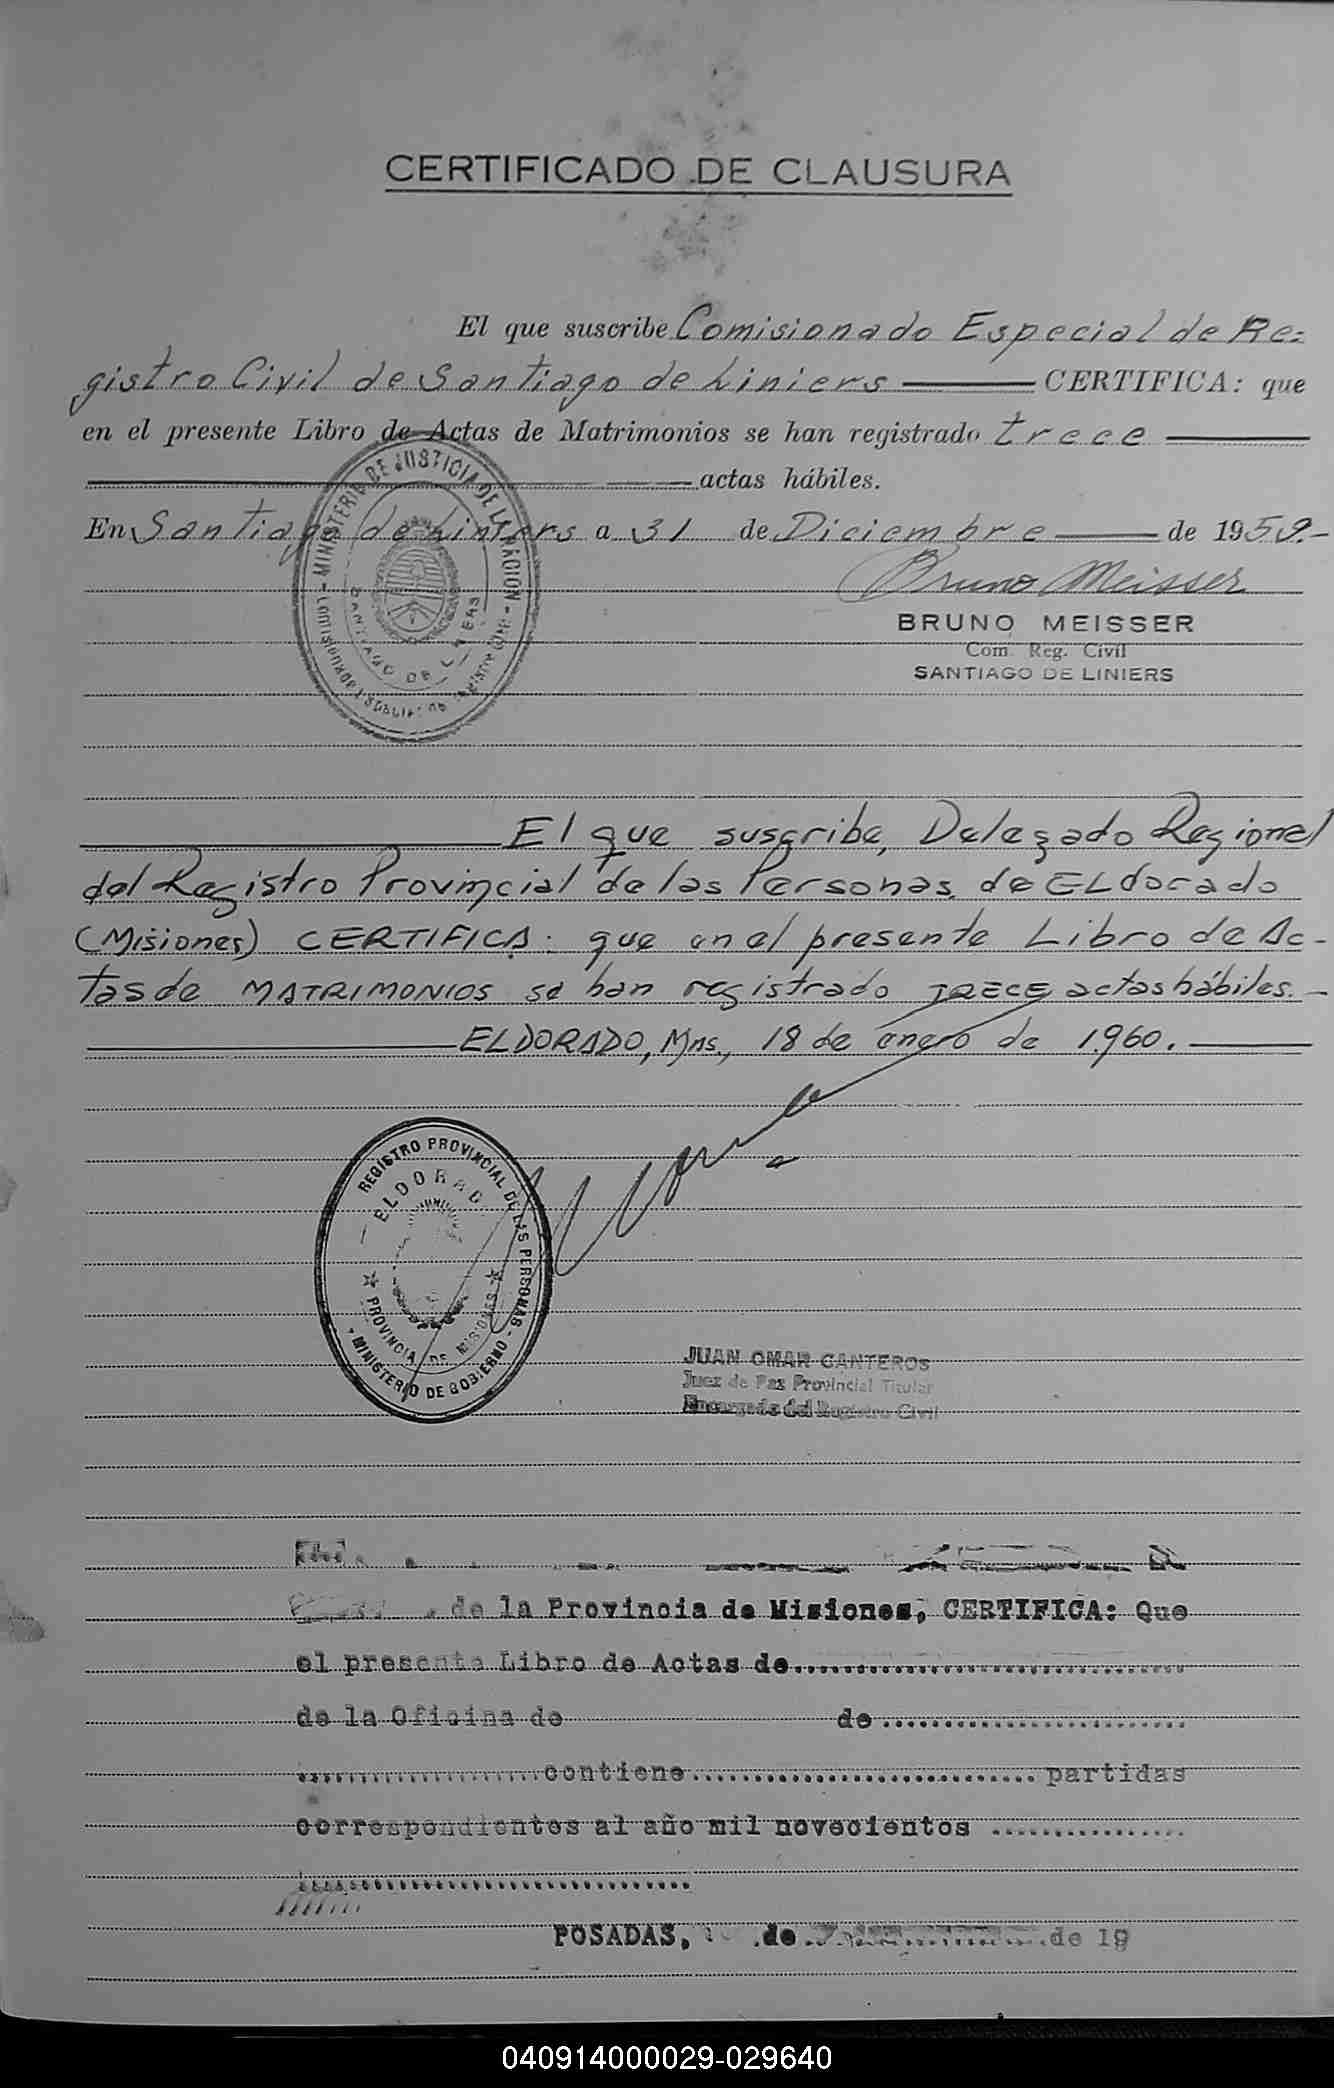 CERTIFICADO DE CLAUSURA
El que suscribe Comisionado Especial de Re=
gistro Civil de Santiago de Liniers CERTIFICA: que
en el presente Libro de Actas de Matrimonios se han registrado trece
actas hábiles.
En Santiago de Liniers a 31 de Diciembre de 1959.-
Bruno Meisser
BRUNO MEISSER
Com. Reg. Civil
SANTIAGO DE LINIERS
MINISTERIO DE JUSTICIA DE LA NACION
SANTIAGO DE LINIERS
El que suscribe, Delegado Regional
del Registro Provincial de las Personas de ELdorado
(Misiones) CERTIFICA: que en el presente Libro de Ac-
tas de MATRIMONIOS se han registrado TRECE actas hábiles.-
ELDORADO, Mns., 18 de enero de 1.960.
REGISTRO PROVINCIAL DE LAS PERSONAS
ELDORADO
PROVINCIA DE MISIONES
MINISTERIO DE GOBIERNO
JUAN OMAR CANTEROS
Juez de Paz Provincial Titular
Encargado del Registro Civil
de la Provincia de Misiones, CERTIFICA: Que
el presente Libro de Actas de
de la Oficina de de
contiene partidas
correspondientes al año mil novecientos
POSADAS, de de 19
040914000029-029640